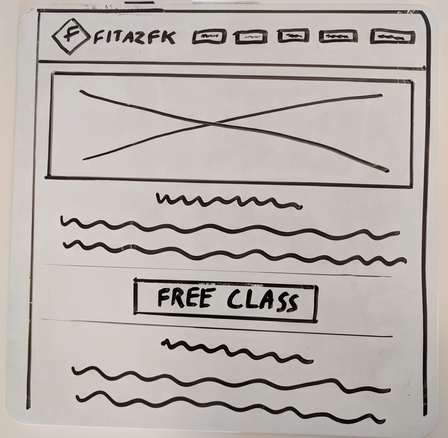 F FITAZFK
FREE CLASS